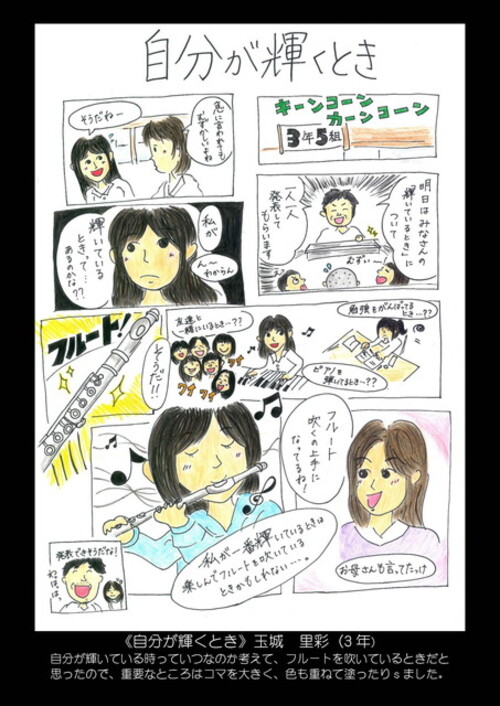 自分が輝くとき
キーンコーン
カーンコーン
3年5組
明日はみなさんの
「輝いているとき」に
ついて
一人一人
発表して
もらいます
むずぃ〜
急に言われても
むずかしいよね
そうだねー
私が
輝いている
ときって…
あるのかな??
ん〜
わからん
勉強をがんばってる
とき…??
ピアノを
弾いてるとき…??
友達と
一緒にいるとき…??
ワイ
ワイ
ワイ
そうだ!!
フルート!
フルート
吹くの上手に
なってるね!
お母さんも言ってたっけ
私が一番輝いているときは
楽しんでフルートを吹いている
ときかもしれない…。
発表できそうだな!
《自分が輝くとき》玉城 里彩（3年）
自分が輝いている時っていつなのか考えて、フルートを吹いているときだと
思ったので、重要なところはコマを大きく、色も重ねて塗ったりｓました。